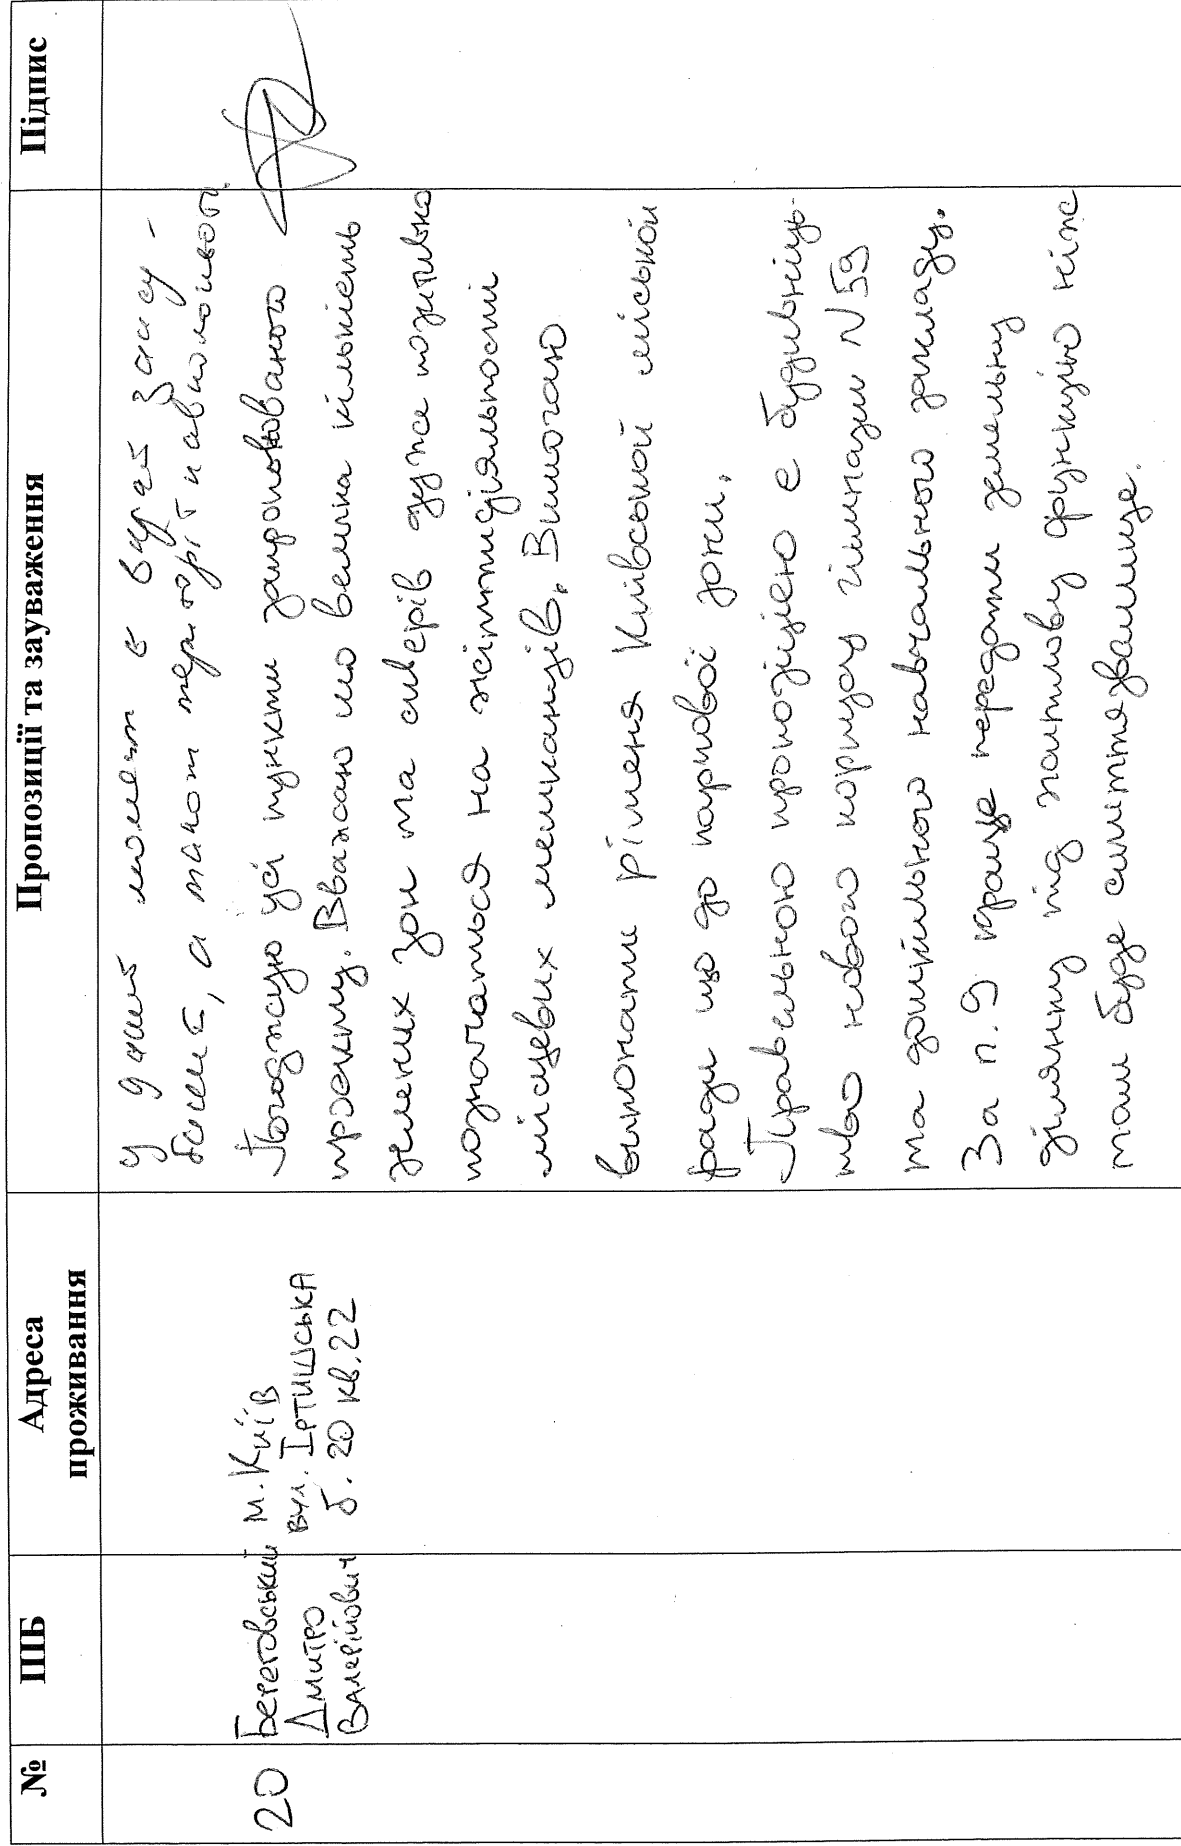 № ПІБ Адреса проживання Пропозиції та зауваження Підпис
у даний момент є вкрай
а також території навколо
20 Береговський Дмитро Валерійович
м. Київ
вул. Іртишська
б. 20 кв. 22
Погоджую усі пункти запропонованого
проекту. Вважаю що велика кількість
зелених зон та скверів дуже позитивно
позначаться на жіттидіяльності
місцевих мешканців. Вимогаю
виконати рішеня Київської міської
ради що до паркової зони.
Правельною пропозицією є будивниць-
тво нового корпусу гімназии N 59
та дошкільного навчального закладу.
За п. 9 краще передати земельну
ділянку під поштову функцію ніж
там буде сміттязвалище.